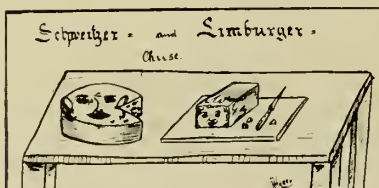 Schweitzer = and Limburger =
Chese.